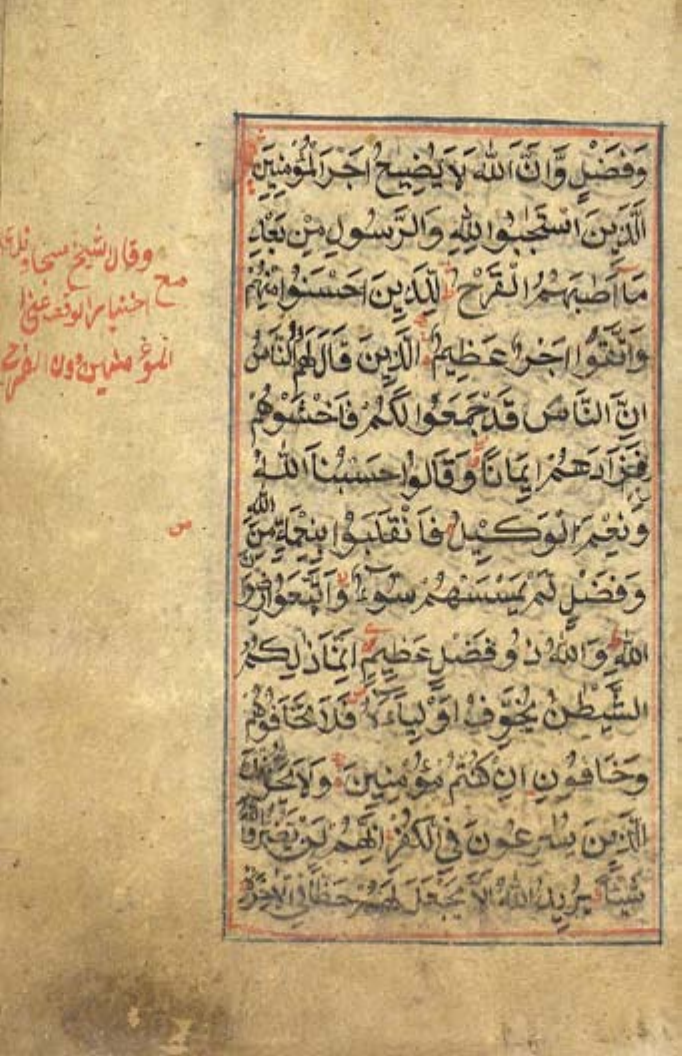 وَفَضْلٍ وَّاَنَّ اللّٰهَ لَا يُضِيعُ اَجْرَ الْمُؤْمِنِينَ
الَّذِينَ اسْتَجَبُوا لِلّٰهِ وَالرَّسُولِ مِنْ بَعْدِ
مَا اَصٰبَهُمُ الْقَرْحُ لِلَّذِينَ اَحْسَنُوا مِنْهُمْ
وَاتَّقَوْا اَجْرٌ عَظِيمٌ الَّذِينَ قَالَ لَهُمُ النَّاسُ
اِنَّ النَّاسَ قَدْ جَمَعُوا لَكُمْ فَاخْشَوْهُمْ
فَزَادَهُمْ اِيمَانًا وَّقَالُوا حَسْبُنَا اللّٰهُ
وَنِعْمَ الْوَكِيلُ فَانْقَلَبُوا بِنِعْمَةٍ مِّنَ اللّٰهِ
وَفَضْلٍ لَّمْ يَمْسَسْهُمْ سُوءٌ وَّاتَّبَعُوا رِضْوَانَ
اللّٰهِ وَاللّٰهُ ذُو فَضْلٍ عَظِيمٍ اِنَّمَا ذٰلِكُمُ
الشَّيْطٰنُ يُخَوِّفُ اَوْلِيَاءَهُ فَلَا تَخَافُوهُمْ
وَخَافُونِ اِنْ كُنْتُمْ مُؤْمِنِينَ وَلَا يَحْزُنْكَ
الَّذِينَ يُسٰرِعُونَ فِي الْكُفْرِ اِنَّهُمْ لَنْ يَضُرُّوا اللّٰهَ
شَيْئًا يُرِيدُ اللّٰهُ اَلَّا يَجْعَلَ لَهُمْ حَظًّا فِي الْاٰخِرَةِ
وقال شيخ
مع
المؤمنين دون القرح